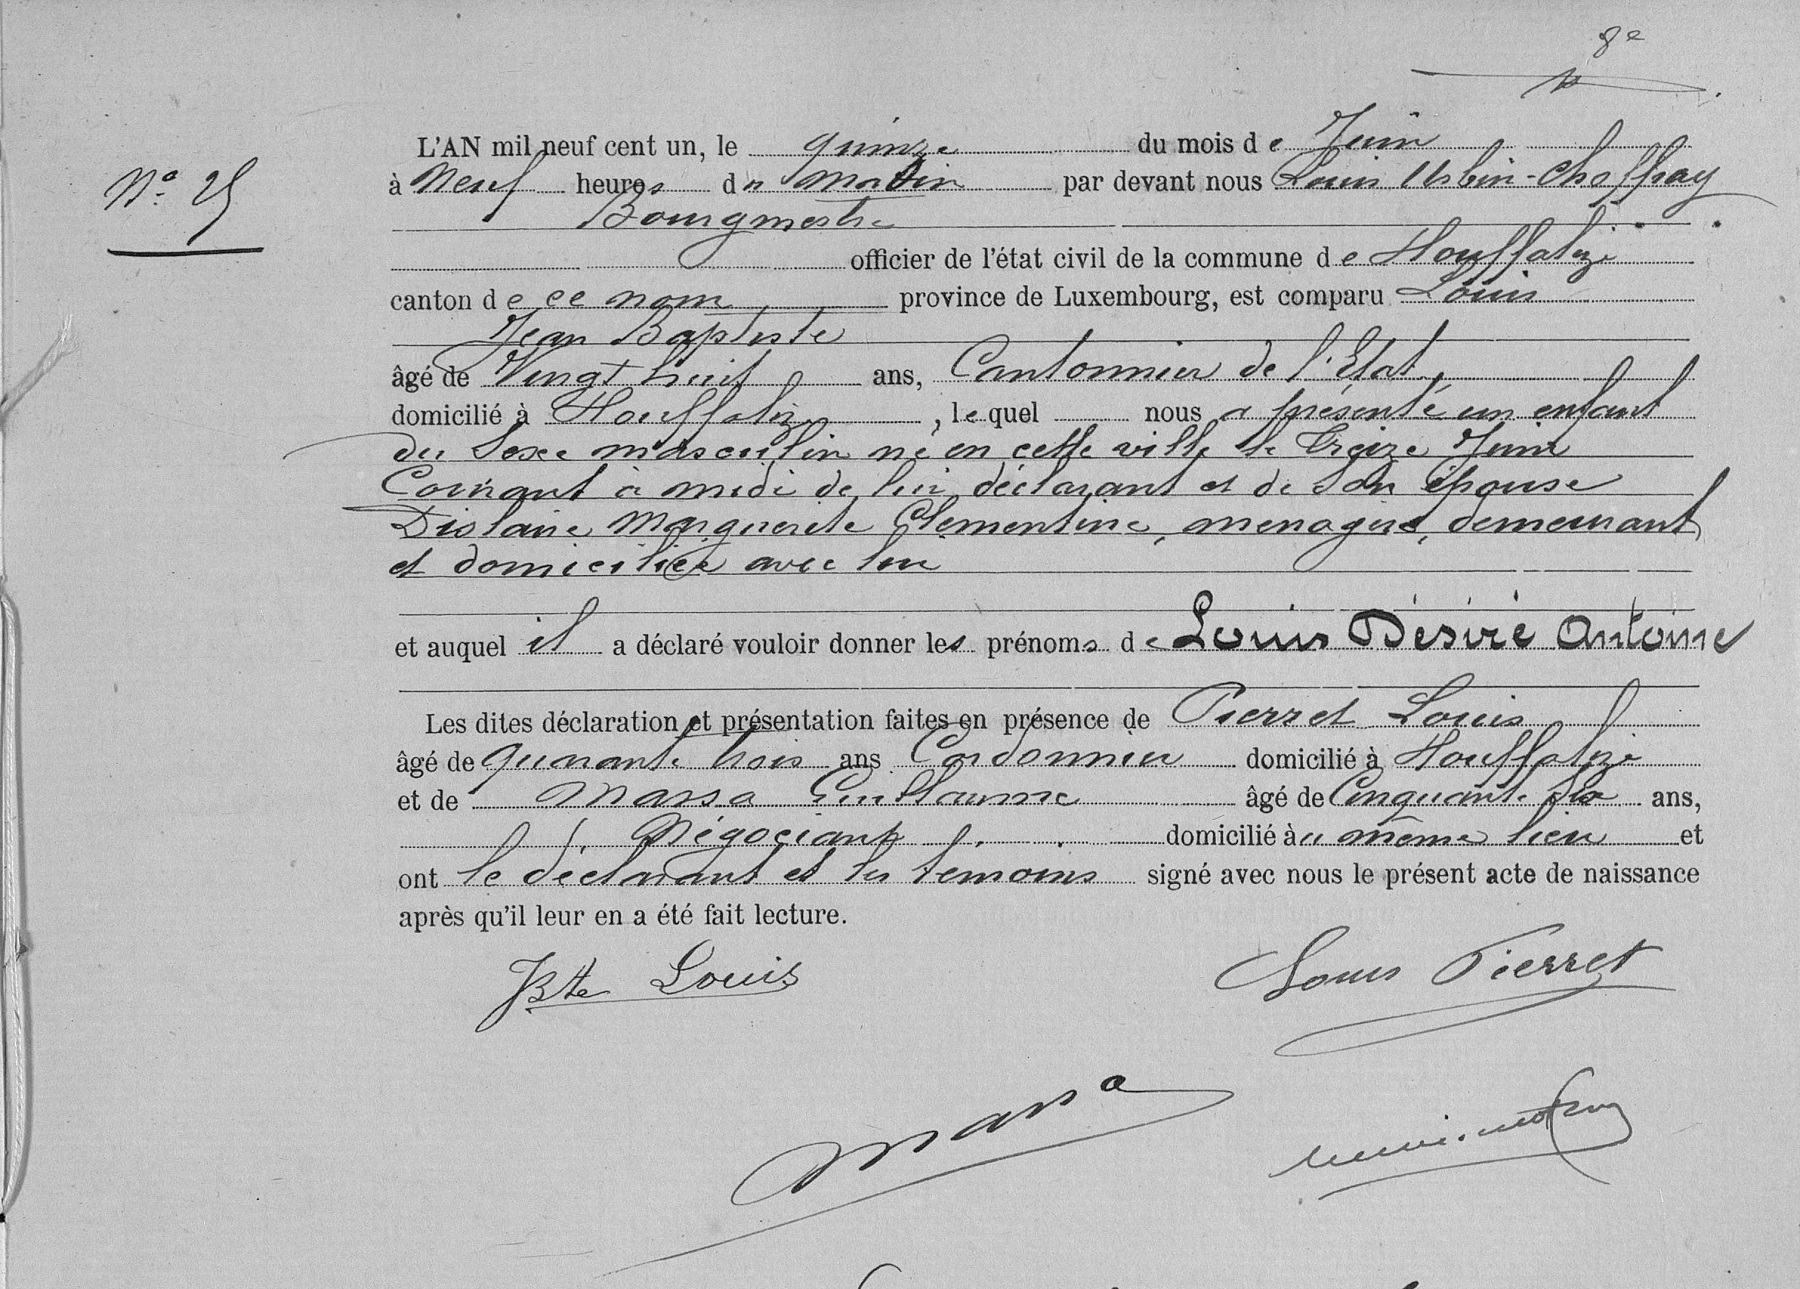 8e
L'AN mil neuf cent un, le quinze du mois de Juin
N° 25
à Neuf heures du matin par devant nous Louis Urbin-Choffray
Bourgmestre
officier de l'état civil de la commune de Houffalize
canton de ce nom province de Luxembourg, est comparu Louis
Jean Baptiste
âgé de Vingt huit ans, Cantonnier de l'Etat,
domicilié à Houffalize, lequel nous a présenté un enfant
du Sexe masculin né en cette ville le Treize Juin
Courant à midi de lui déclarant et de Son épouse
Dislaire Marguerite Clementine, menagère, demeurant
et domiciliée avec lui
et auquel il a déclaré vouloir donner les prénoms de Louis Désiré Antoine
Les dites déclaration et présentation faites en présence de Pierret Louis
âgé de quarante trois ans Cordonnier domicilié à Houffalize
et de Massa Guillaume âgé de Cinquante Six ans,
Négociant domicilié au même lieu et
ont le déclarant et les temoins signé avec nous le présent acte de naissance
après qu'il leur en a été fait lecture.
JBte Louis Louis Pierret
Massa